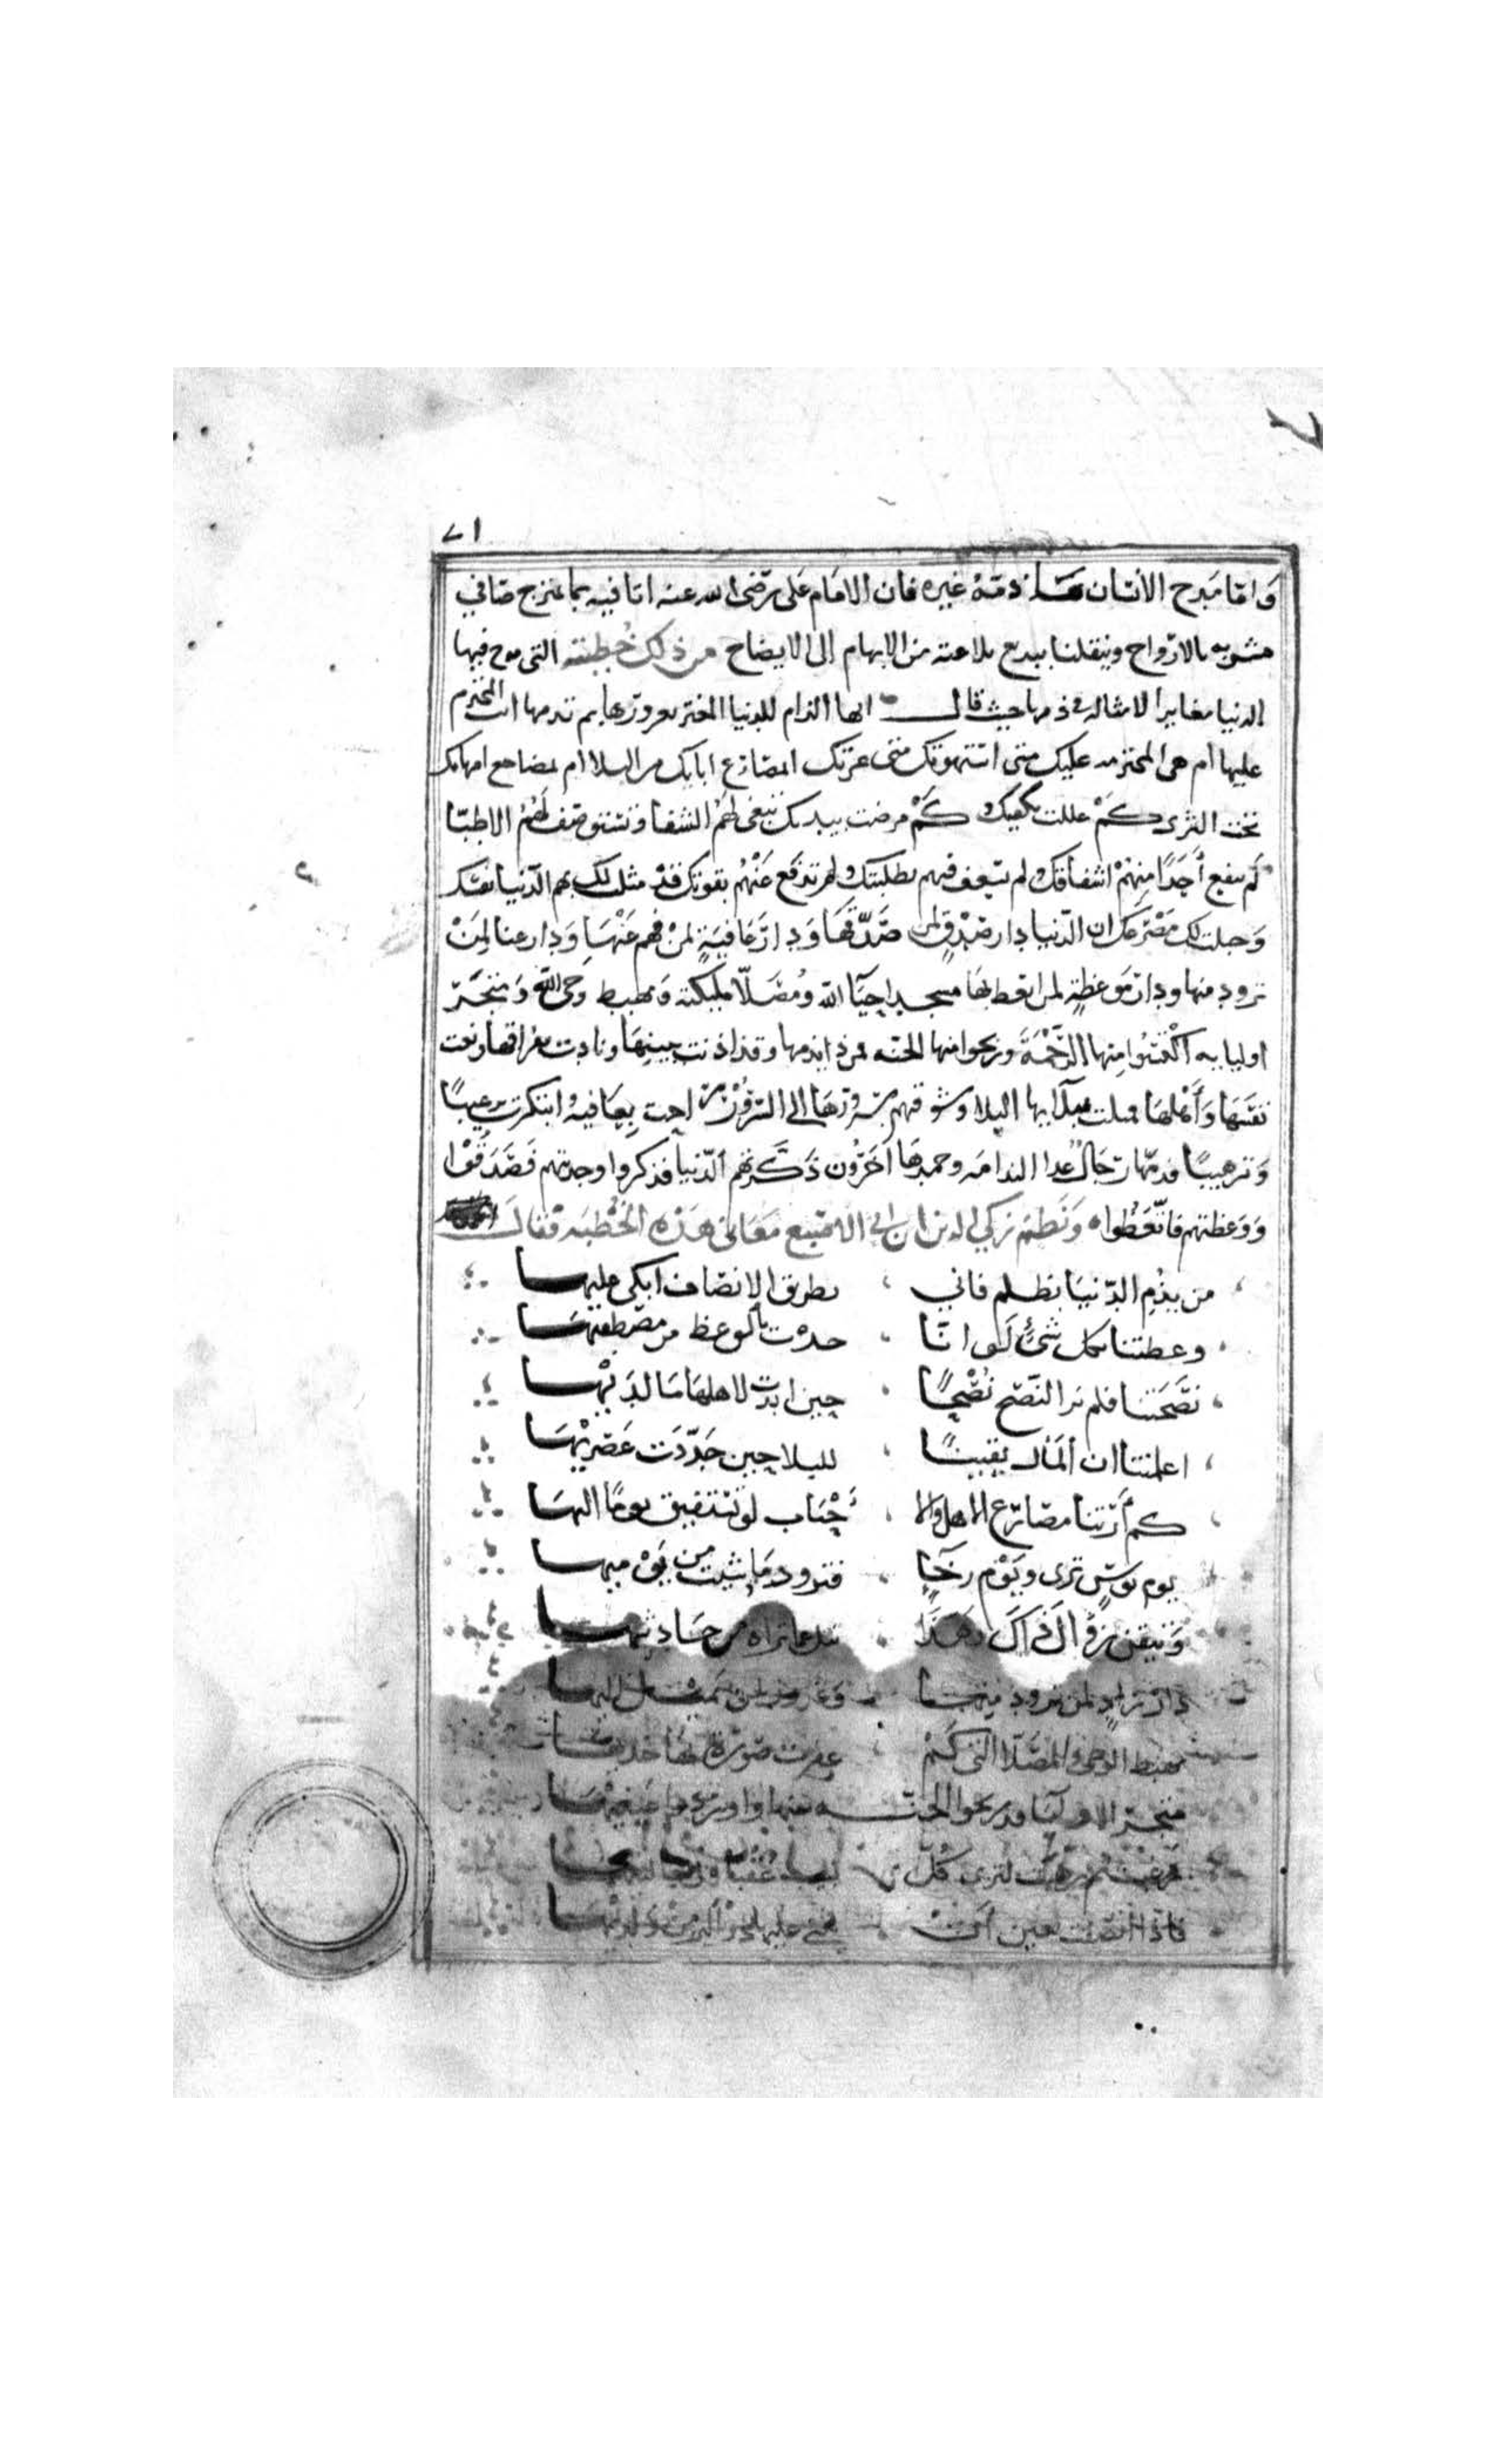 ٧١
وَامّا مَدح الانسان مَا ذمّهُ غيره فان الامَام عَلى رَضى الله عنه اتا فيه بما يمتزج صَافي
مشوبه بالارواح وينقلنا ببديع بلاغته من الابهام إلى الايضاح من ذلك خُطبته التى مدح فيها
الدنيا مغايرا لامثاله فى ذمها حيث قال ايها الذام للدنيا المغتر بغرورها بم تذمها انت المجترم
عليها ام هى المجترمه عليك متى استهوتك متى غرتك ابمصَارع ابايك من البلا ام بمضاجع امهاتك
تحت الثرى كمْ عللت بكفيك وكمْ مرضت بيديك تبتغى لهُمُ الشفا وتستوصِف لَهُمُ الاطبّا
لَم ينفع أَحَدًا مِنهُمْ اشفاقك ولم تسعف فيهم بطلبتك ولم تدفع عَنْهُم بقوتك قدْ مثلت لك بهم الدّنيا نفسك
وَبمصرعه مَصْرَعَك ان الدّنيا دار صِدْقٍ لمن صَدَّقهَا وَدارُ عَافيَةٍ لمنْ فهم عَنْهَا وَدار غنا لِمَنْ
تزود منها ودار مَوعظةٍ لمن اتعظ بهَا مسجد احِبّآ الله ومُصَلّا مليكته وَمهبط وَحى الله وَمتجَر
اوليايه اكْتسَبُوا مِنها الرَّحْمَةَ وربحوا منها الجنّه فمن ذا يذمها وقد اذنت ببينِهَا ونادت بفراقها ونعت
نفسَهَا وَأَهلهَا فمثلت ببلآيها البلا وشوقتهم بسُرورهَا الى السّرُوْر راحت بِعَافيه وابتكرت ترغيبًا
وَترهيبًا فذمّها رجَالٌ غدا الندامَه وحمدهَا آخَرُون ذَكَّرتهم الدّنيا فذكروا وحدثتهم فصَدَقُوْا
وَوَعظتهم فاتّعَظُوا وَنَظم زكي الدين ابن ابى الاصبع مَعَانى هَذه الخُطبَه فقالَ
من يذُم الدّنيَا بظلم فاني بطريق الانصَاف ابكى عليهَا
وعظتنا بكل شئٍ لَو انّا حدْت بالوعظ من مصْطفيهَا
نصَحَتنا فلم نر النّصْح نُصْحًا حِين ابدَت لاهلهَا مَا لدَيْهَا
اعلمتنا ان المَآل يقينًا للبلا حِين جَدّدَت عَصْرَيْهَا
كم أَرَتنا مصَارع الاهل والا حْبَاب لوْ نَسْتَفيق يومًا اليهَا
يوم بُوسٍ ترى وَيَوْم رخَآءٍ فتزود مَا شئت من يَوْ ميهَا
وَتيقن زوالَ ذاكَ وَهَذَا تسل عما تراه من حَادثيهَا
دَار زادٍ لمن تزود منهَا وَغرور لمن يميل اليهَا
مهبط الوحى والمصَلّا التى كَمْ عفرت صورة بها خديهَا
متجر الاوليَا قد ربحوا الجنّـ ـه منها واوردوا عَينيهَا
رغبت ثم رهبت ليرى كُلّ
فاذا انصفت تعين أَنْ يثنى عليها